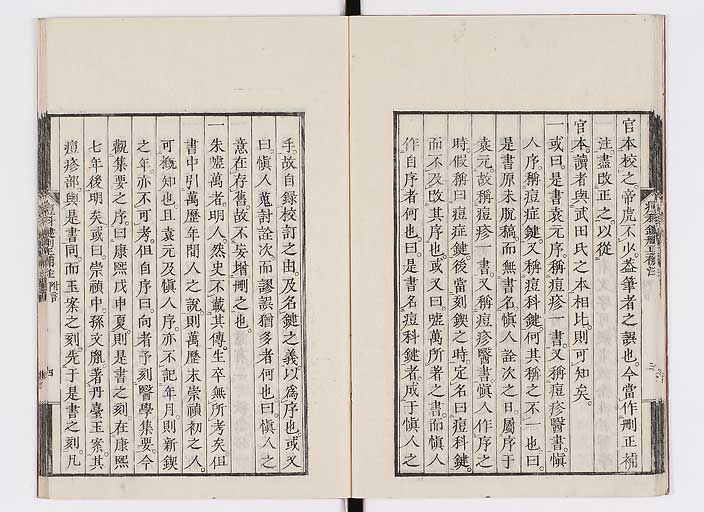 官本校之帝虎不少蓋筆者之誤也今當作刪正補
注盡改正之以從
官本讀者與武田氏之本相比則可知矣
一或曰是書袁元序稱痘疹一書又稱痘疹醫書慎
人序稱痘症鍵又稱痘科鍵何其稱之不一也曰
是書原未脫稿而無書名慎人詮次之日屬序于
袁元故稱痘疹一書又稱痘疹醫書慎人作序之
時假稱曰痘症鍵後當刻鍥之時定名曰痘科鍵
而不及改其序也或又曰噓萬所著之書而慎人
作自序者何也曰是書名痘科鍵者成于慎人之
手故自錄校訂之由及名鍵之義以為序也或又
曰慎人蒐討詮次而謬誤猶多者何也曰慎人之
意在存舊故不妄增刪之也
一朱噓萬者明人然史不載其傳生卒無所考矣但
書中引萬歷年間人之說則萬歷末崇禎初之人
可概知也且袁元及慎人序亦不記年月則新鍥
之年亦不可考但自序曰向者予刻醫學集要今
觀集要之序曰康熙戊申夏則是書之刻在康熙
七年後明矣或曰崇禎中孫文胤著丹臺玉案其
痘疹部與是書同而玉案之刻先于是書之刻凡
痘科鍵刪正補注
附言
四